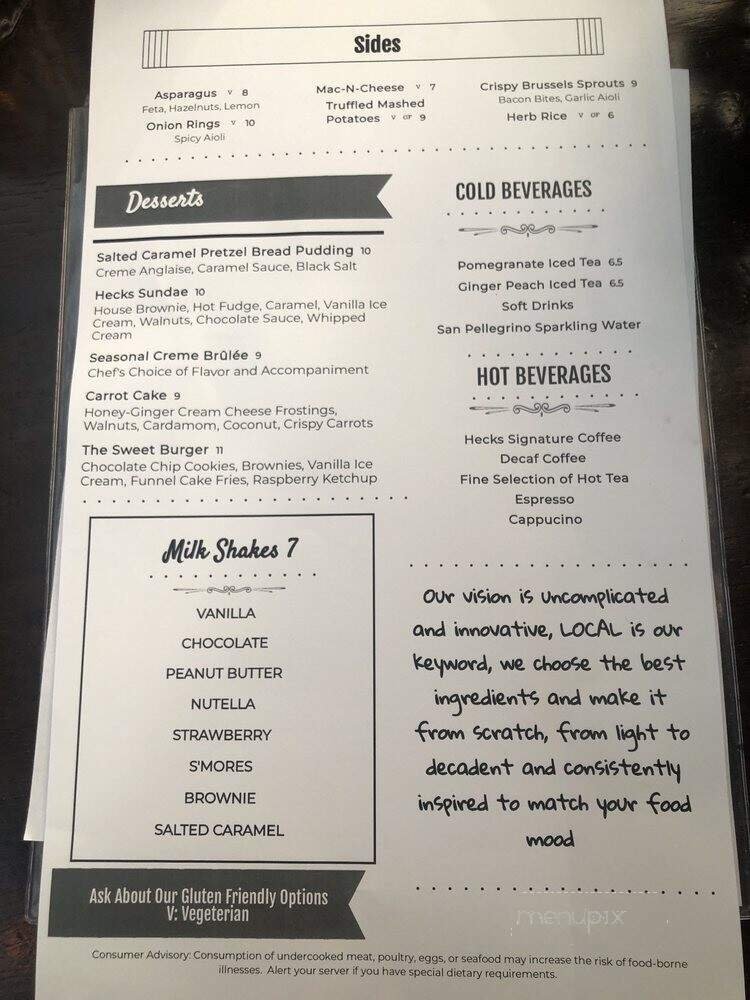 Sides
Asparagus V 8
Feta, Hazelnuts, Lemon
Onion Rings V 10
Spicy Aioli
Mac-N-Cheese V 7
Truffled Mashed
Potatoes V GF 9
Crispy Brussels Sprouts 9
Bacon Bites, Garlic Aioli
Herb Rice V GF 6
Desserts
Salted Caramel Pretzel Bread Pudding 10
Creme Anglaise, Caramel Sauce, Black Salt
Hecks Sundae 10
House Brownie, Hot Fudge, Caramel, Vanilla Ice
Cream, Walnuts, Chocolate Sauce, Whipped
Cream
Seasonal Creme Brûlée 9
Chef's Choice of Flavor and Accompaniment
Carrot Cake 9
Honey-Ginger Cream Cheese Frostings,
Walnuts, Cardamom, Coconut, Crispy Carrots
The Sweet Burger 11
Chocolate Chip Cookies, Brownies, Vanilla Ice
Cream, Funnel Cake Fries, Raspberry Ketchup
Milk Shakes 7
VANILLA
CHOCOLATE
PEANUT BUTTER
NUTELLA
STRAWBERRY
S'MORES
BROWNIE
SALTED CARAMEL
Ask About Our Gluten Friendly Options
V: Vegeterian
COLD BEVERAGES
Pomegranate Iced Tea 6.5
Ginger Peach Iced Tea 6.5
Soft Drinks
San Pellegrino Sparkling Water
HOT BEVERAGES
Hecks Signature Coffee
Decaf Coffee
Fine Selection of Hot Tea
Espresso
Cappucino
Our vision is uncomplicated
and innovative, LOCAL is our
keyword, we choose the best
ingredients and make it
from scratch, from light to
decadent and consistently
inspired to match your food
mood
menupix
Consumer Advisory: Consumption of undercooked meat, poultry, eggs, or seafood may increase the risk of food-borne
illnesses. Alert your server if you have special dietary requirements.